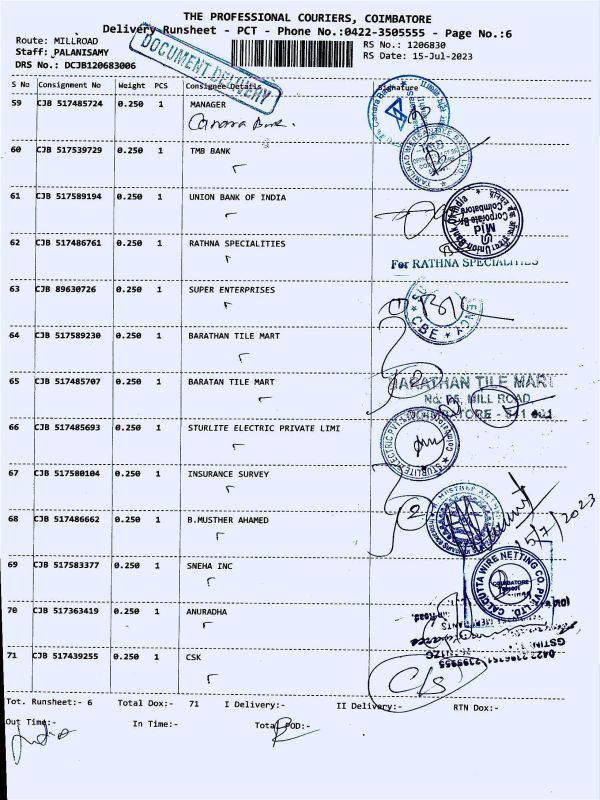 THE PROFESSIONAL COURIERS, COIMBATORE
Delivery Runsheet - PCT - Phone No.:0422-3505555 - Page No.:6
Route: MILLROAD
RS No.: 1206830
Staff: PALANISAMY
RS Date: 15-Jul-2023
DRS No.: DCJB120683006
DOCUMENT DELIVERY
S No Consignment No Weight PCS Consignee Details Signature
59 CJB 517485724 0.250 1 MANAGER
Canara Bank.
60 CJB 517539729 0.250 1 TMB BANK
TAMILNAD MERCANTILE BANK LTD
61 CJB 517589194 0.250 1 UNION BANK OF INDIA
Union Bank of India
Mid
Corporate
Coimbatore
62 CJB 517486761 0.250 1 RATHNA SPECIALITIES
For RATHNA SPECIALITIES
63 CJB 89630726 0.250 1 SUPER ENTERPRISES
CBE
64 CJB 517589230 0.250 1 BARATHAN TILE MART
65 CJB 517485707 0.250 1 BARATAN TILE MART
BARATHAN TILE MART
MILL ROAD
66 CJB 517485693 0.250 1 STURLITE ELECTRIC PRIVATE LIMI
STURLITE ELECTRIC PVT.
67 CJB 517580104 0.250 1 INSURANCE SURVEY
68 CJB 517486662 0.250 1 B.MUSTHER AHAMED
2
15/7/2023
69 CJB 517583377 0.250 1 SNEHA INC
CALCUTTA WIRE NETTING CO. PVT. LTD.
COIMBATORE
70 CJB 517363419 0.250 1 ANURADHA
GSTIN
71 CJB 517439255 0.250 1 CSK
Tot. Runsheet:- 6 Total Dox:- 71 I Delivery:- II Delivery:- RTN Dox:-
Out Time:- In Time:- Total POD:-